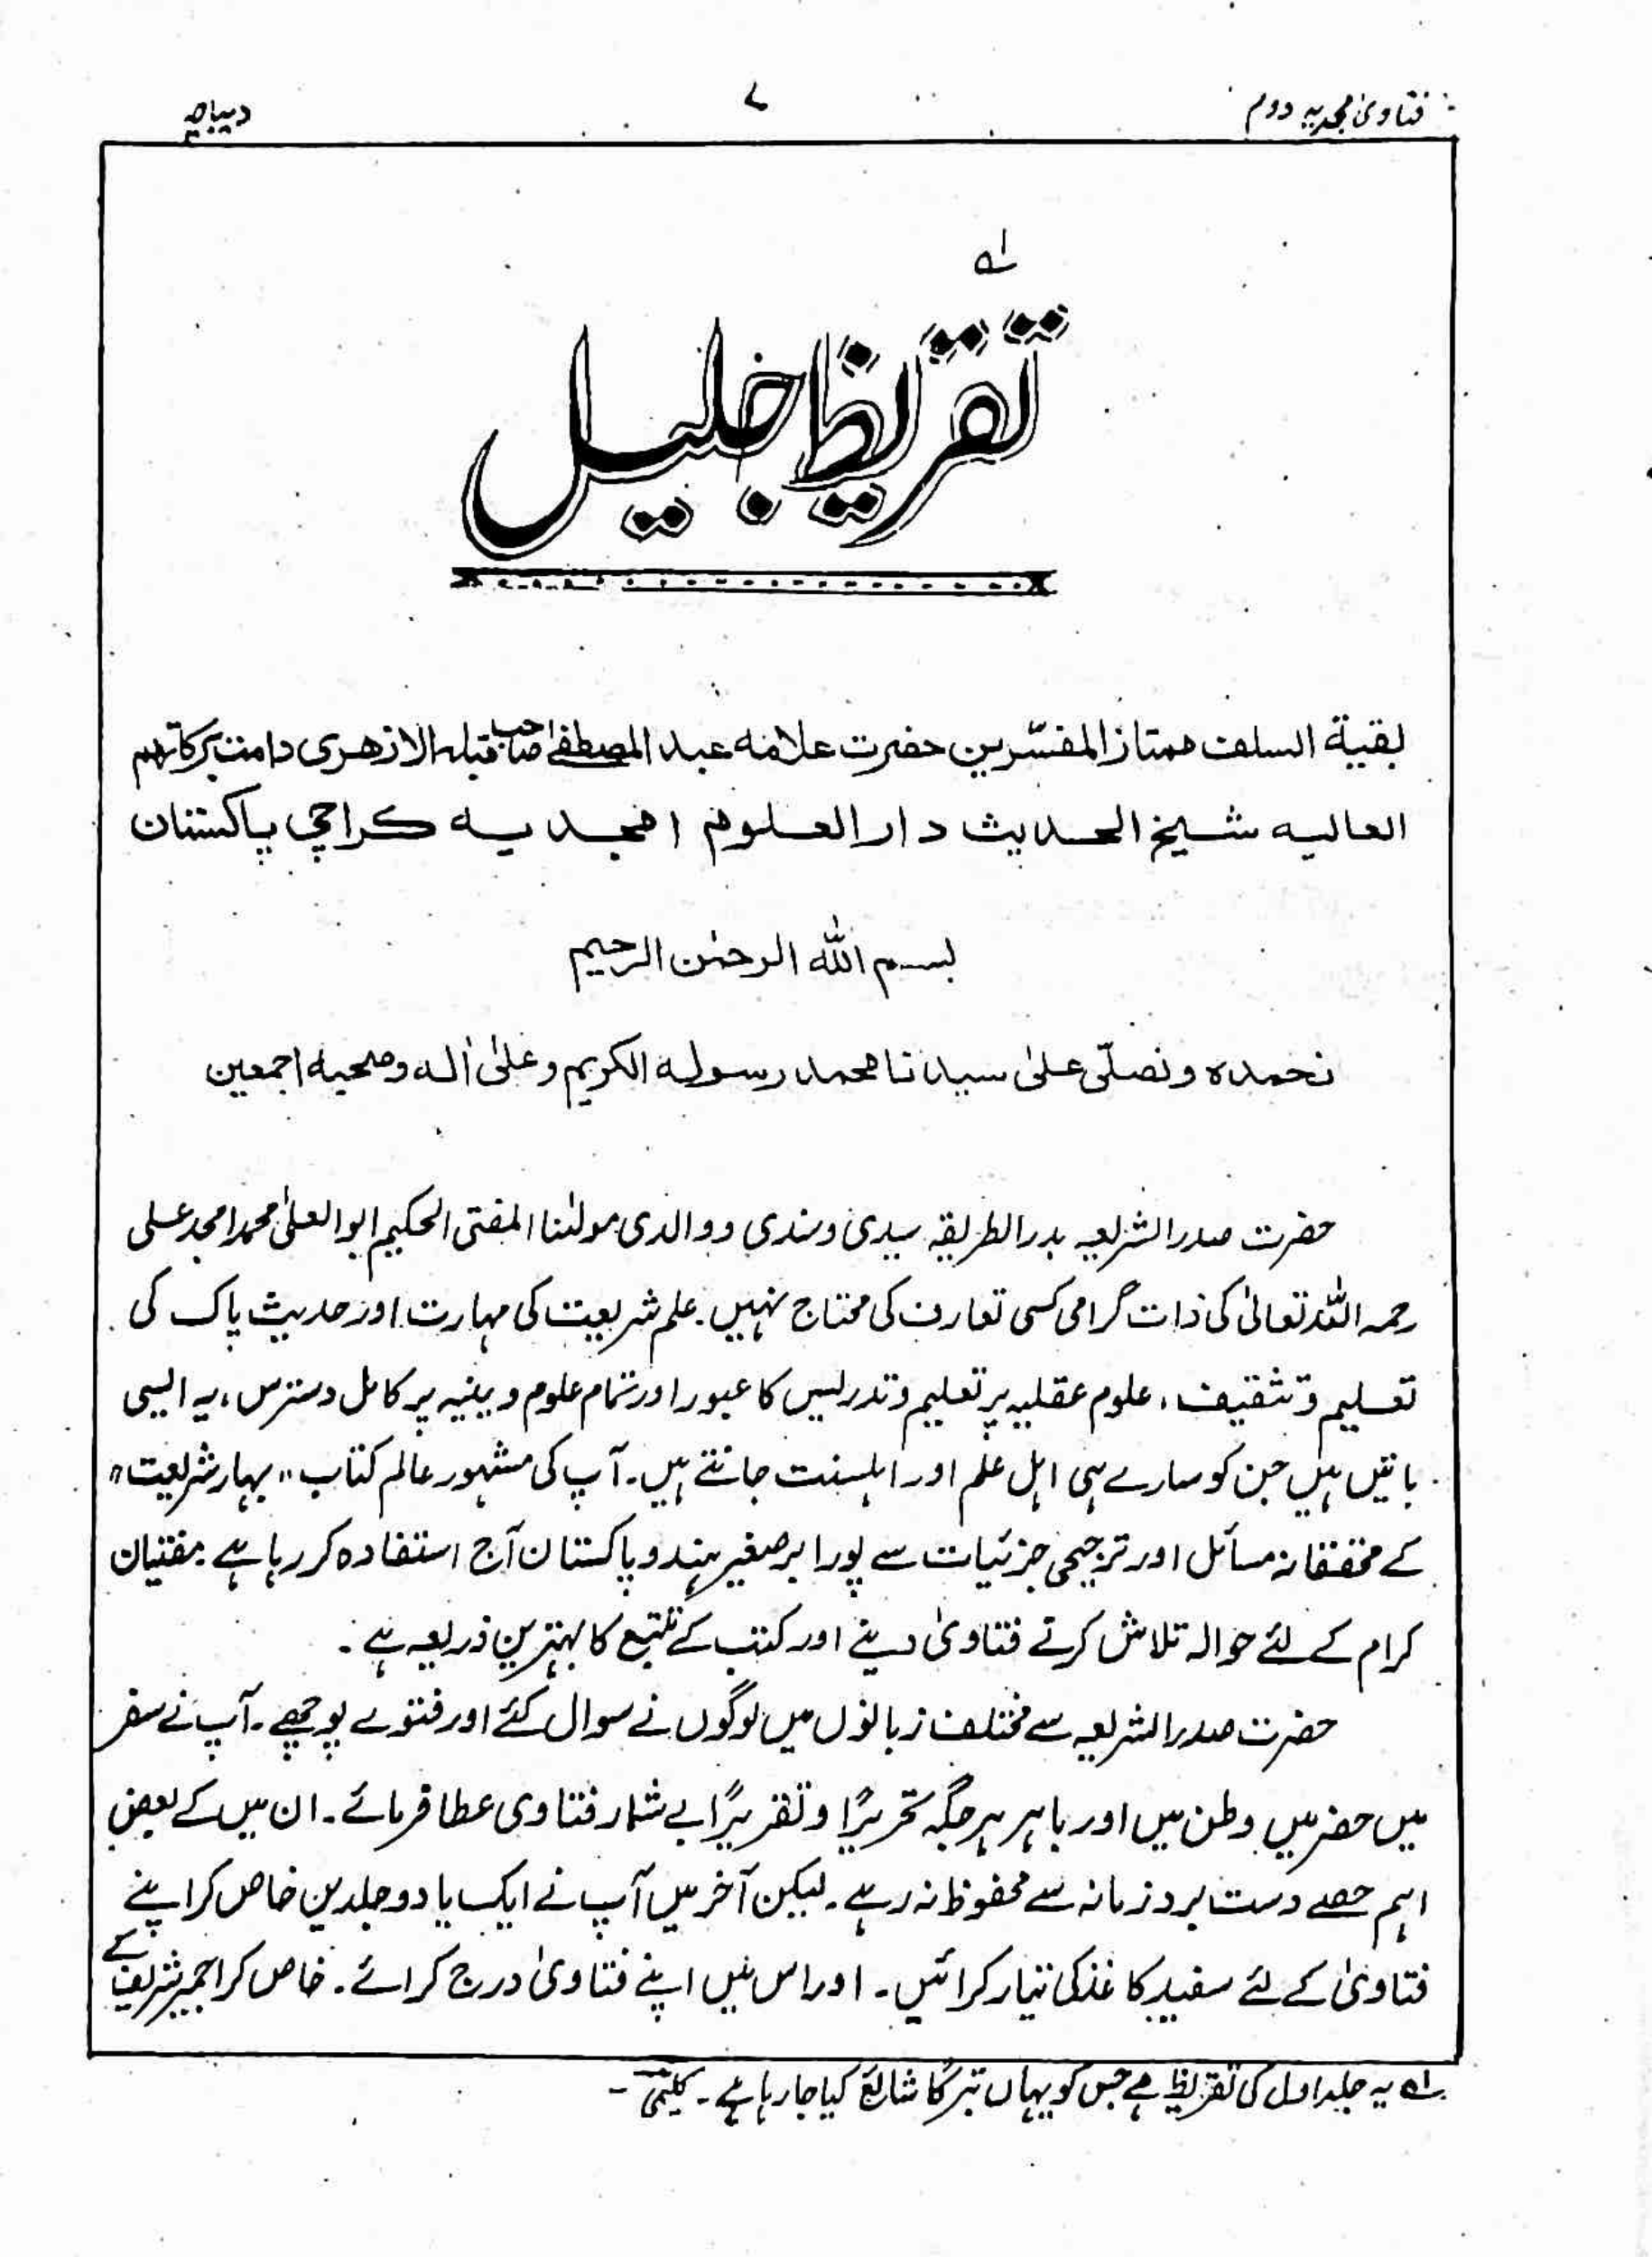 فتاویٰ امجدیہ دوم ۷ دیباچہ
۱ے
تقریظ جلیل
بقیۃ السلف ممتاز المفسّرین حضرت علامہ عبد المصطفےٰ صاحب قبلہ الازھری دامت برکاتہم
العالیہ شیخ الحدیث دار العلوم امجدیہ کراچی پاکستان
بسم اللہ الرحمٰن الرحیم
نحمدہ ونصلّی علیٰ سیدنا محمد رسولہ الکریم وعلیٰ اٰلہ وصحبہ اجمعین
حضرت صدر الشریعہ بدر الطریقہ سیدی وسندی ووالدی مولٰنا المفتی الحکیم ابو العلیٰ محمد امجد علی
رحمہ اللہ تعالیٰ کی ذات گرامی کسی تعارف کی محتاج نہیں۔ علم شریعت کی مہارت اور حدیث پاک کی
تعلیم و تثقیف، علوم عقلیہ پر تعلیم و تدریس کا عبور اور تمام علوم دینیہ پر کامل دسترس، یہ ایسی
باتیں ہیں جن کو سارے ہی اہل علم اور اہلسنت جانتے ہیں۔ آپ کی مشہور عالم کتاب "بہار شریعت"
کے محققانہ مسائل اور ترجیحی جزئیات سے پورا برصغیر ہندو پاکستان آج استفادہ کر رہا ہے۔ مفتیان
کرام کے لئے حوالہ تلاش کرتے فتاویٰ دینے اور کتب کے تتبع کا بہترین ذریعہ ہے۔
حضرت صدر الشریعہ سے مختلف زبانوں میں لوگوں نے سوال کئے اور فتوے پوچھے۔ آپ نے سفر
میں حضر میں وطن میں اور باہر ہر جگہ تحریرًا و تقریرًا بے شمار فتاوی عطا فرمائے۔ ان میں کے بعض
اہم حصے دست برد زمانہ سے محفوظ نہ رہے۔ لیکن آخر میں آپ نے ایک یا دو جلدیں خاص کر اپنے
فتاویٰ کے لئے سفید کاغذ کی تیار کرائیں۔ اور اس میں اپنے فتاویٰ درج کرائے۔ خاص کر اجمیر شریف کے
۱ے یہ جلد اول کی تقریظ ہے جس کو یہاں تبرکًا شائع کیا جا رہا ہے۔ کلیمی۔